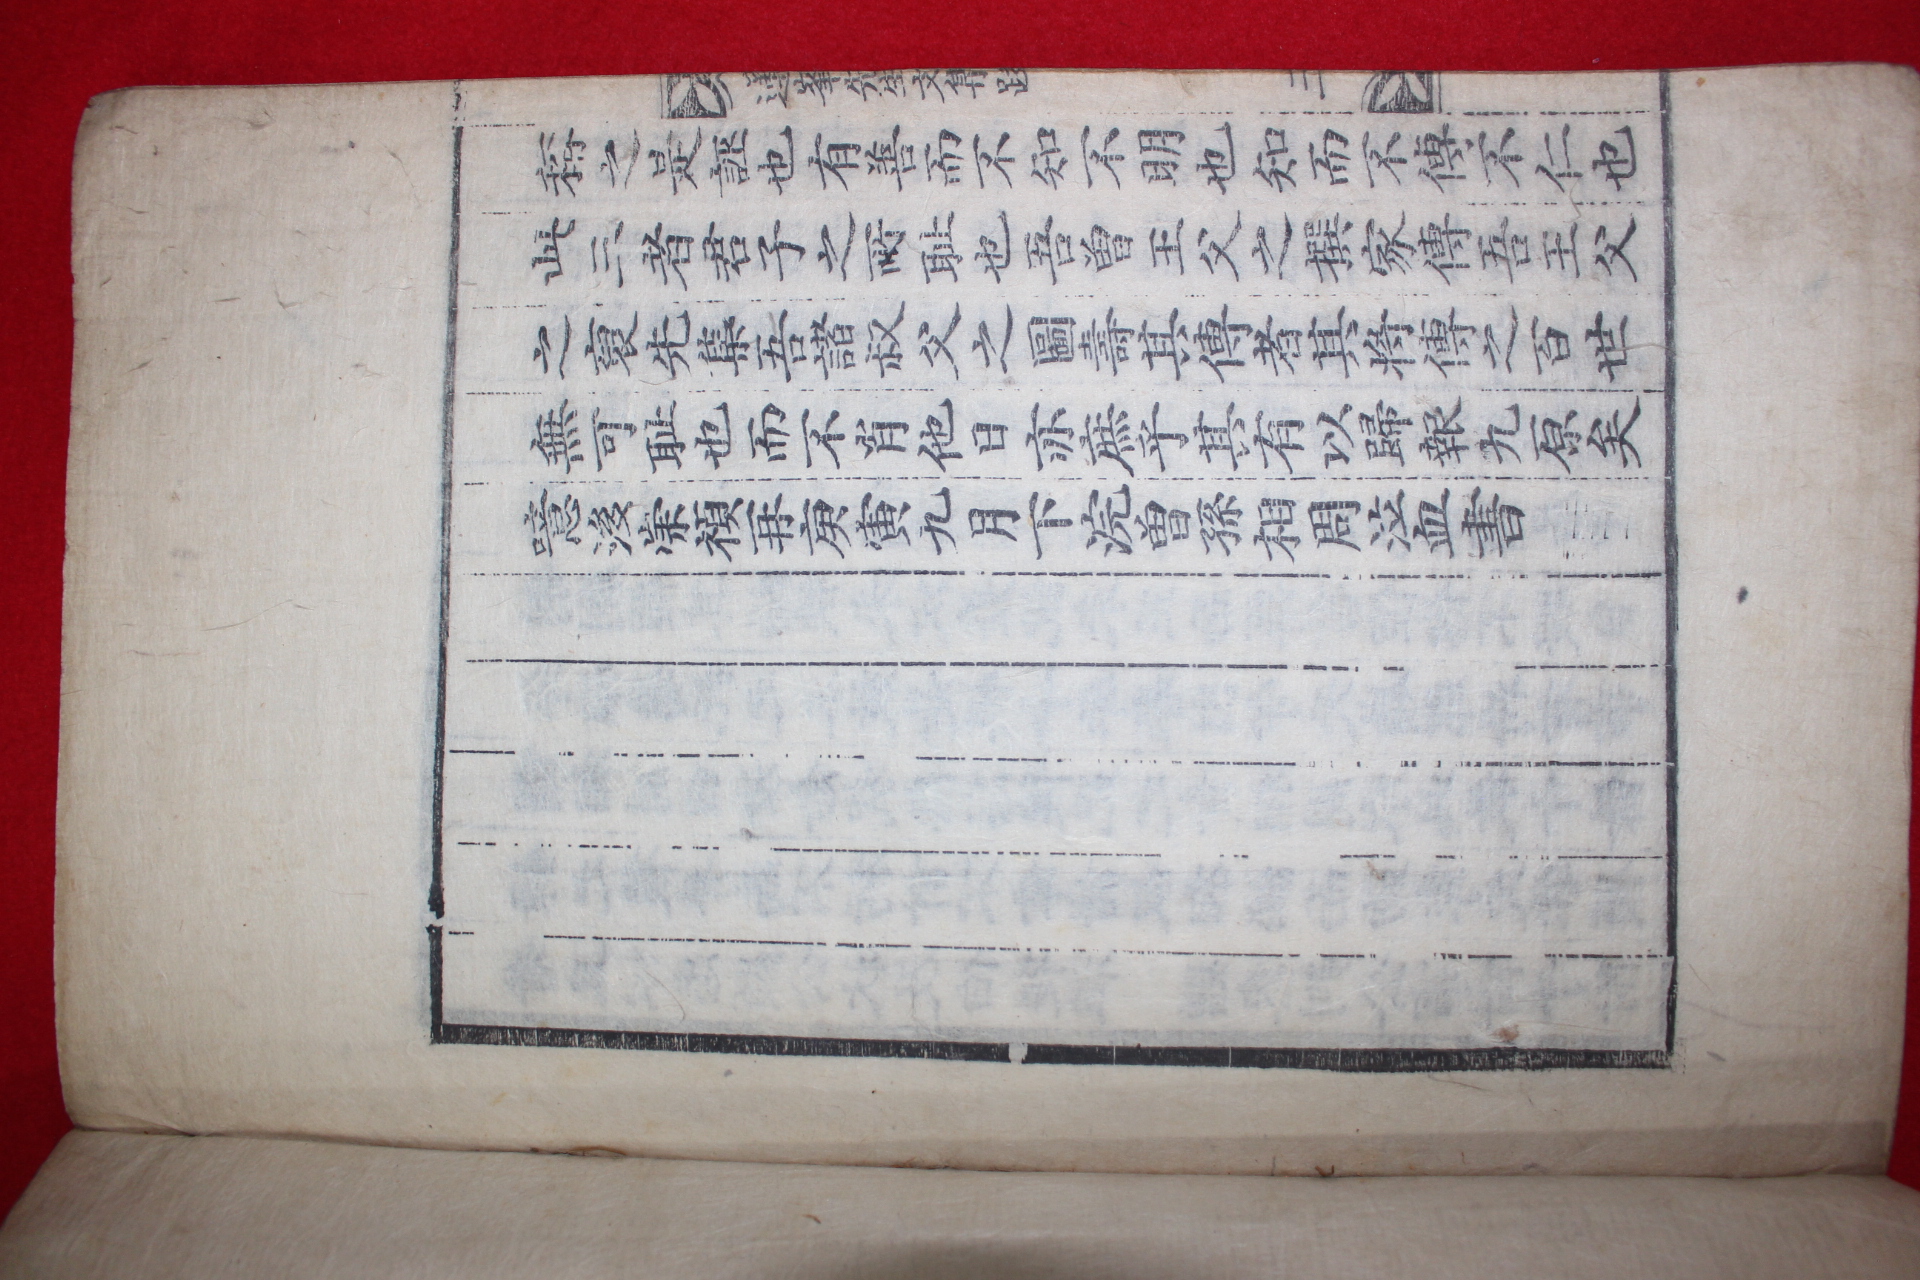 稱之是誣也有善而不知不明也知而不傳不仁也
此三者君子之所耻也吾曾王父之撰家傳吾王父
之裒先集吾諸叔父之圖壽其傳者其將傳之百世
無可耻也而不肖他日亦庶乎其有以歸報九原矣
噫後崇禎再庚寅九月下浣曾孫相周泣血書